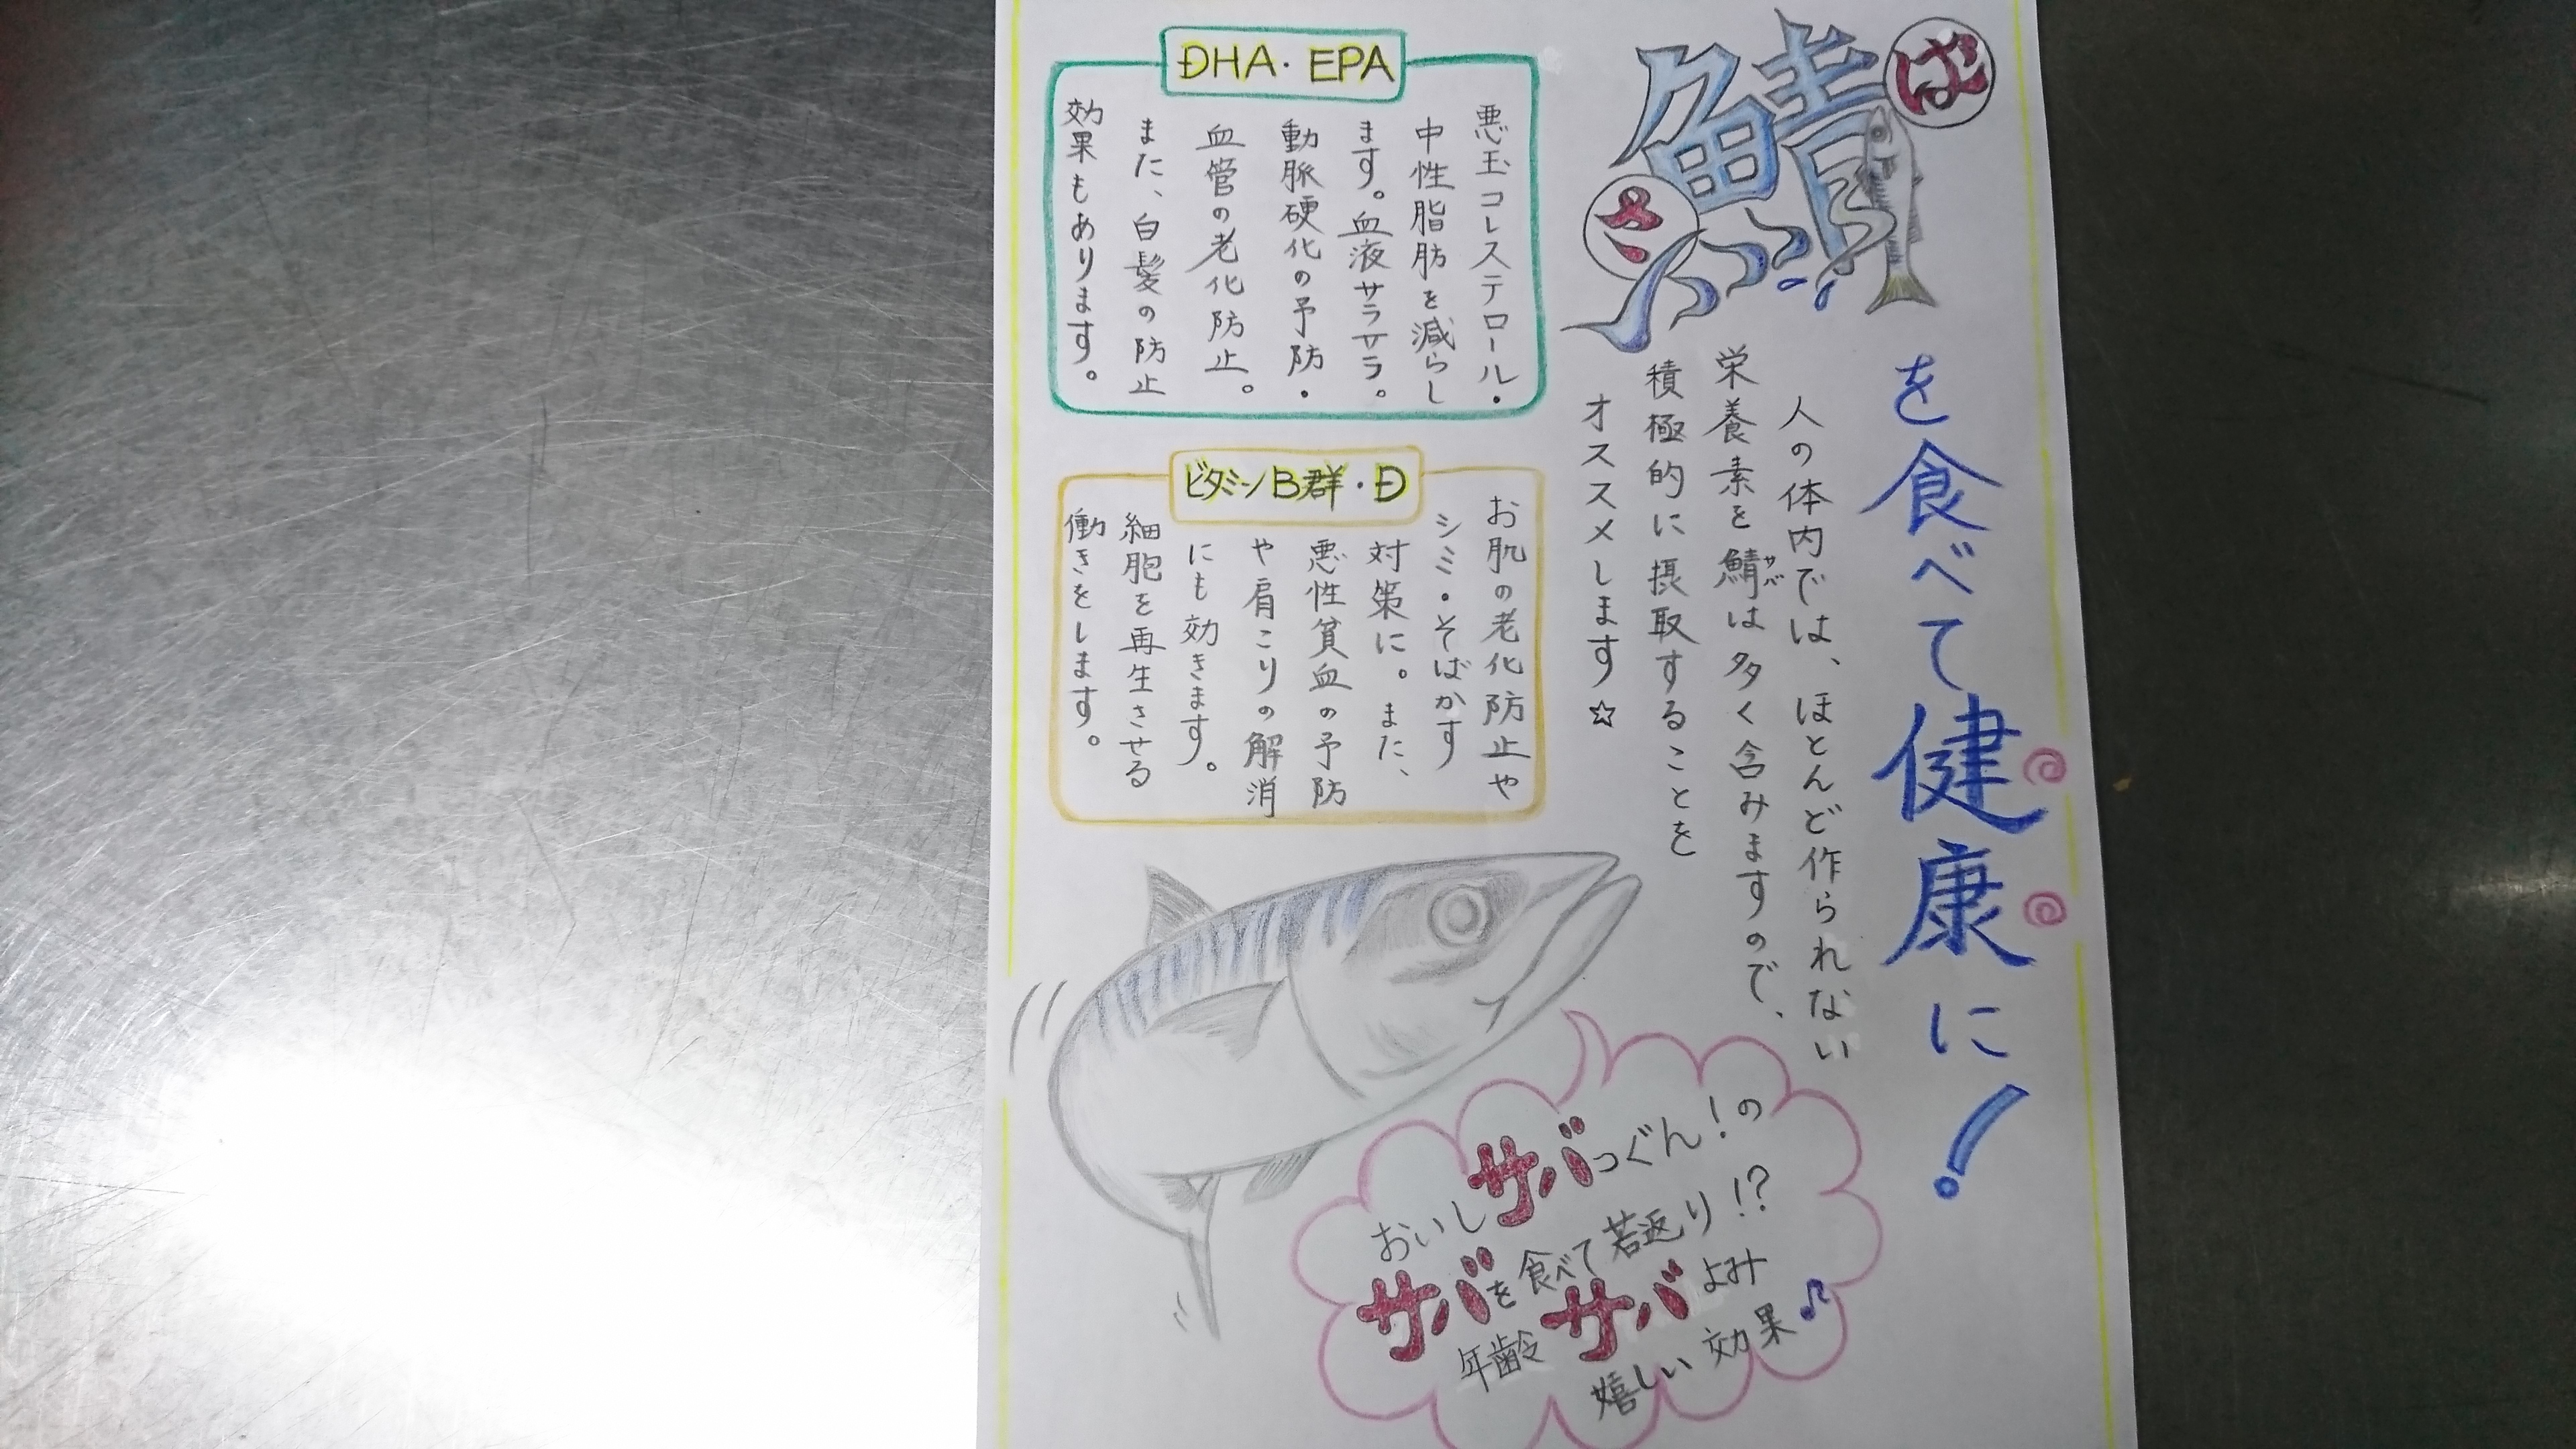 鯖
さ
ば
を食べて健康に!
人の体内では、ほとんど作られない
栄養素を鯖は多く含みますので、
サバ
積極的に摂取することを
オススメします☆
DHA・EPA
悪玉コレステロール・
中性脂肪を減らし
ます。血液サラサラ。
動脈硬化の予防・
血管の老化防止。
また、白髪の防止
効果もあります。
ビタミンB群・D
お肌の老化防止や
シミ・そばかす
対策に。また、
悪性貧血の予防
や肩こりの解消
にも効きます。
細胞を再生させる
働きをします。
おいしサバつぐん!の
サバを食べて若返り!?
年齢サバよみ
嬉しい効果♪